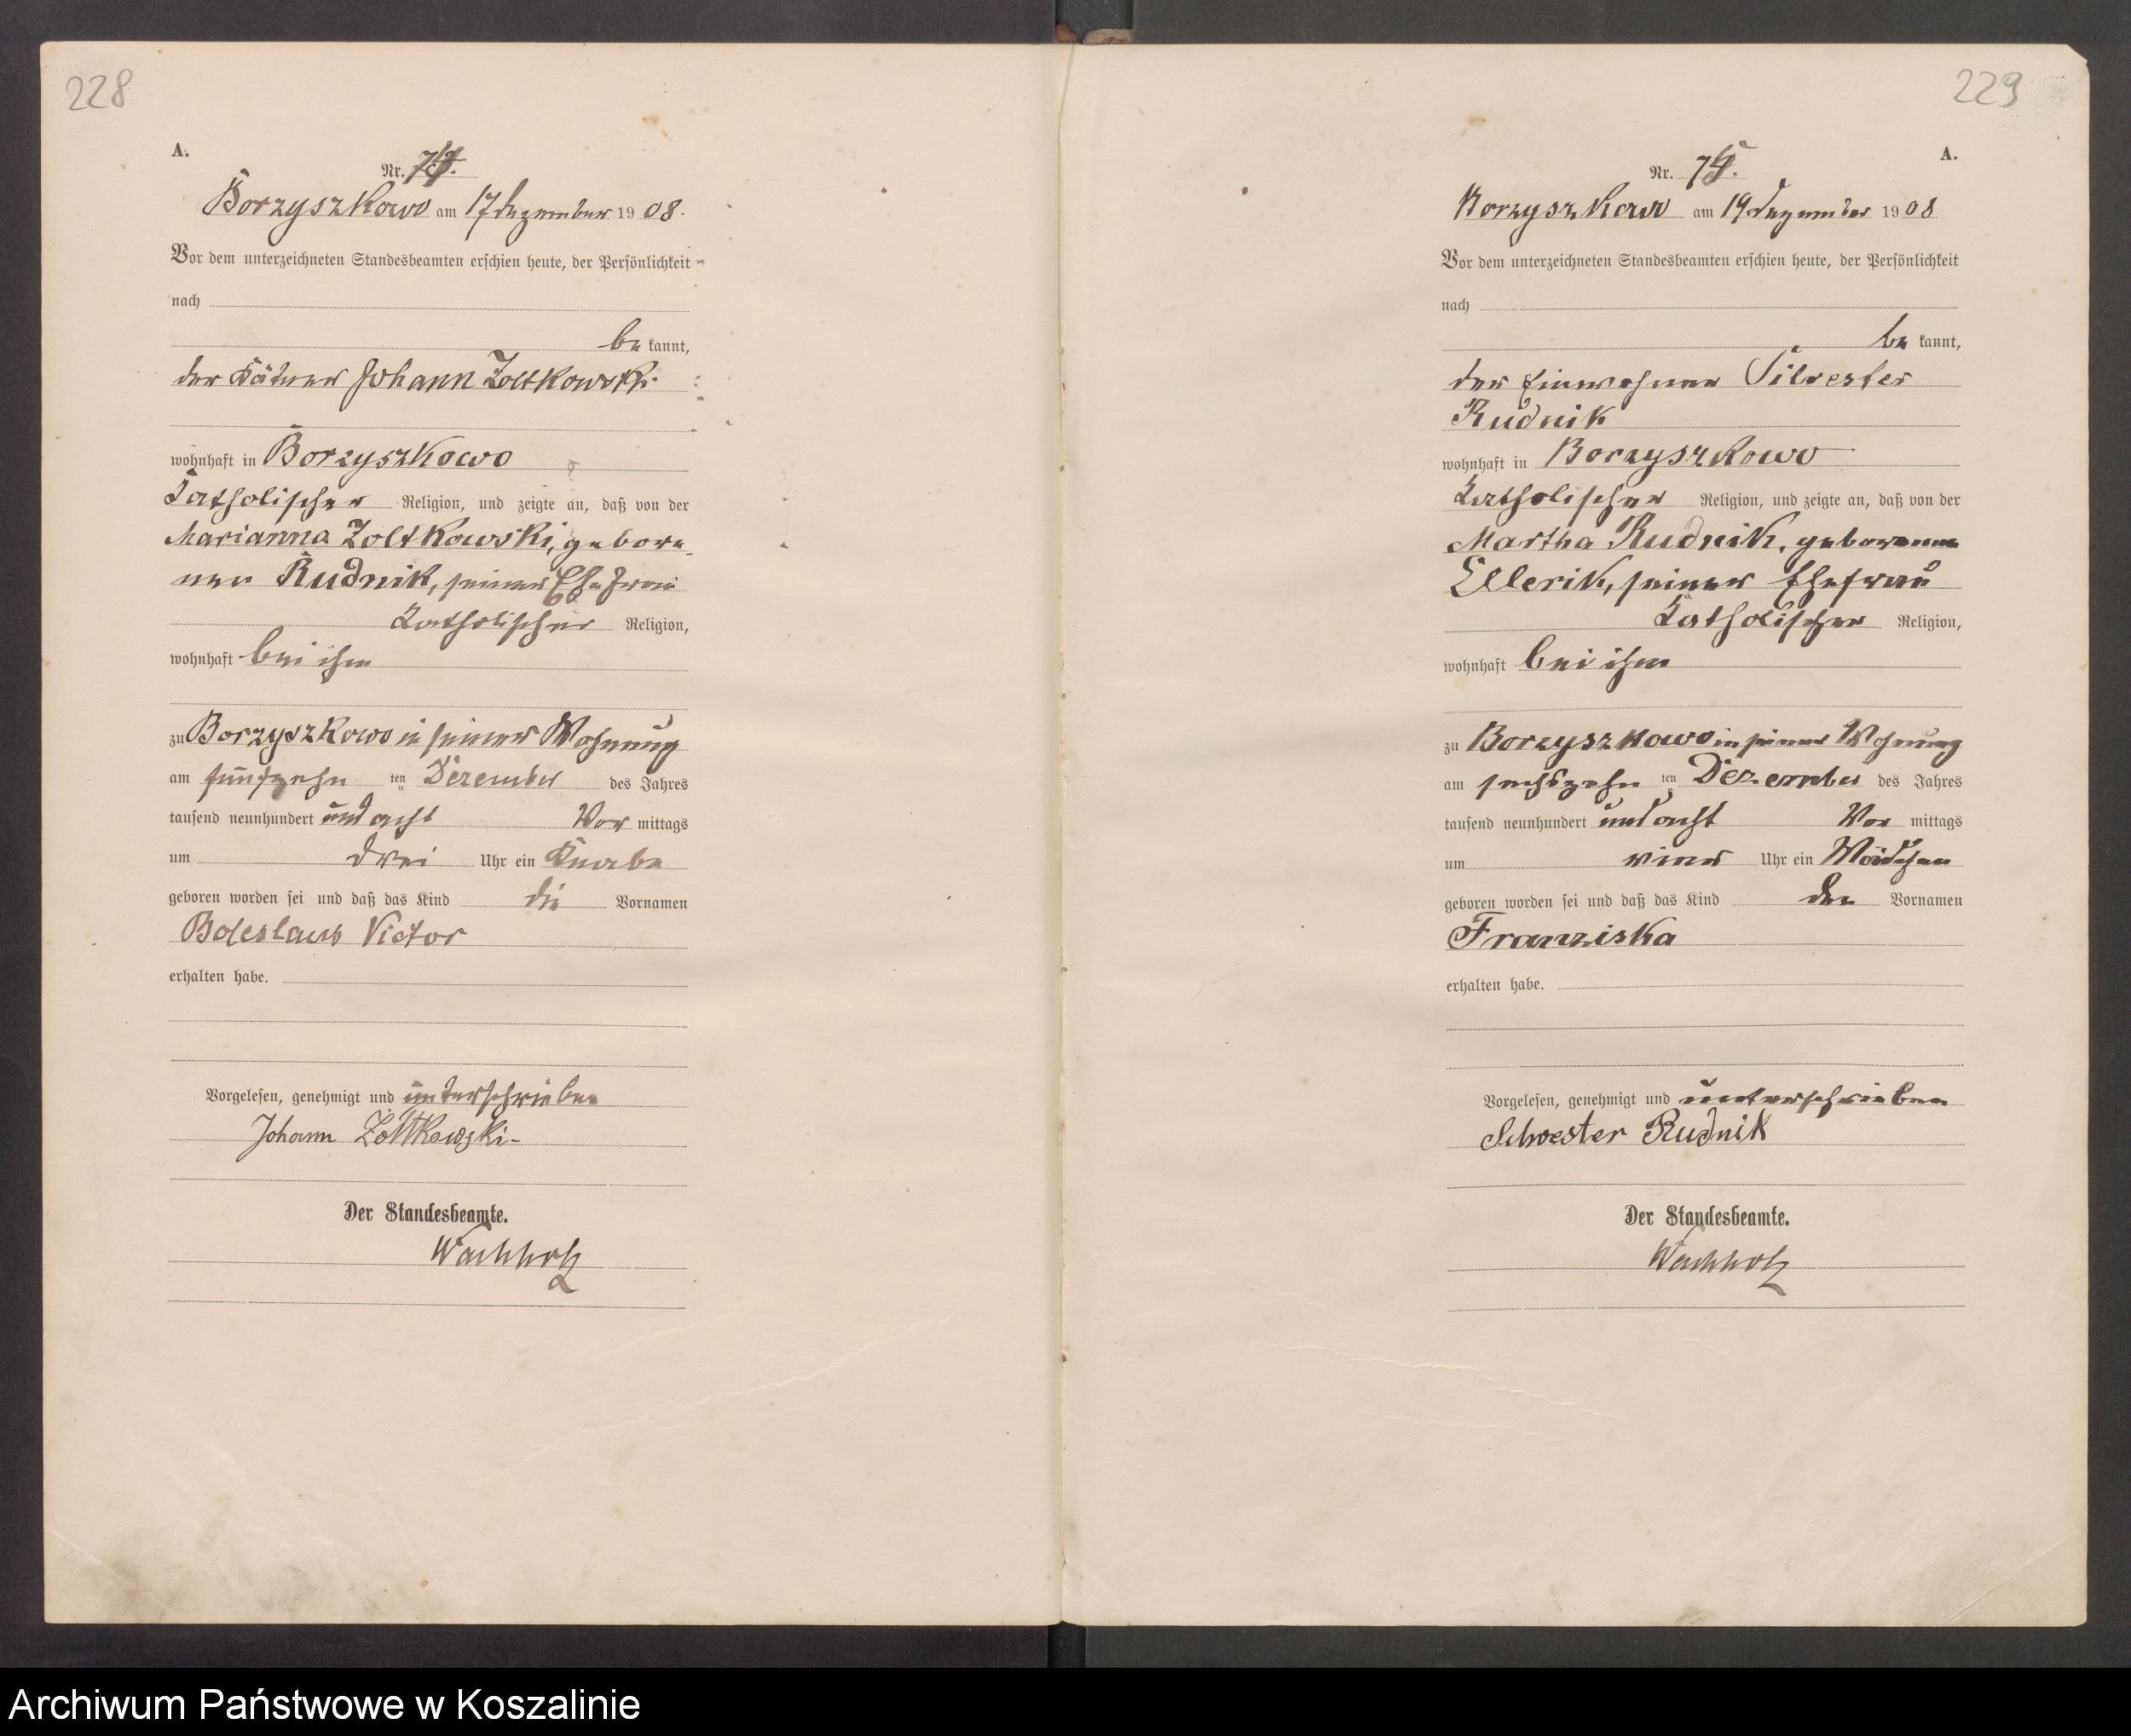 228
A.
Nr. 74.
Borzyszkowo am 17 Dezember 1908.
Vor dem unterzeichneten Standesbeamten erschien heute, der Persönlichkeit
nach
be kannt,
der Kätner Johann Zoltkowski
wohnhaft in Borzyszkowo
katholischer Religion, und zeigte an, daß von der
Marianna Zoltkowski, gebore-
nen Rudnik, seiner Ehefrau
katholischer Religion,
wohnhaft bei ihm
zu Borzyszkowo in seiner Wohnung
am fünfzehn ten Dezember des Jahres
tausend neunhundert und acht Vor mittags
um drei Uhr ein Knabe
geboren worden sei und daß das Kind die Vornamen
Boleslaus Victor
erhalten habe.
Vorgelesen, genehmigt und unterschrieben
Johann Zoltkowski
Der Standesbeamte.
Wachholz
229
A.
Nr. 75.
Borzyszkowo am 19 Dezember 1908
Vor dem unterzeichneten Standesbeamten erschien heute, der Persönlichkeit
nach
be kannt,
der Einwohner Silvester
Rudnik
wohnhaft in Borzyszkowo
katholischer Religion, und zeigte an, daß von der
Martha Rudnik, geborenen
Ellerik, seiner Ehefrau
katholischer Religion,
wohnhaft bei ihm
zu Borzyszkowo in seiner Wohnung
am sechszehn ten Dezember des Jahres
tausend neunhundert und acht Vor mittags
um Uhr ein Mädchen
geboren worden sei und daß das Kind den Vornamen
Franziska
erhalten habe.
Vorgelesen, genehmigt und unterschrieben
Silvester Rudnik
Der Standesbeamte.
Wachholz
Archiwum Państwowe w Koszalinie